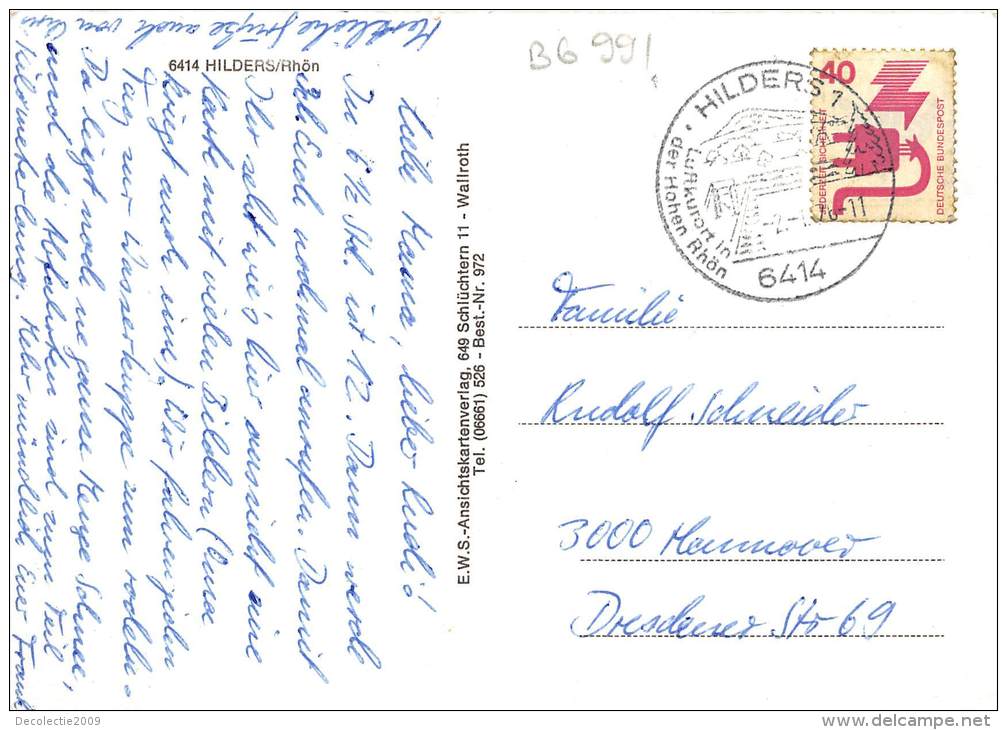 6414 HILDERS/Rhön
Liebe Hanna, lieber Rudi!
In 6 1/2 Std. ist 12. Dann werde
ich Euch nochmal anrufen. Damit
Ihr seht wie's hier aussieht eine
Karte mit vielen Bildern (Oma
kriegt auch eine). Wir fahren jeden
Tag zur Wasserkuppe zum rodeln.
Da liegt noch ne ganze Menge Schnee,
und die Abfahrten sind zum Teil
kilometerlang. Mehr mündlich Euer Frank
Herzliche Grüße auch von
E.W.S.-Ansichtskartenverlag, 649 Schlüchtern 11 - Wallroth
Tel. (06661) 526 - Best.-Nr. 972
B6 991
HILDERS 1
Luftkurort in
der Hohen Rhön
6414
40
JEDERZEIT SICHERHEIT
DEUTSCHE BUNDESPOST
Familie
Rudolf Schneider
3000 Hannover
Dresdener Str 69
Decolectie2009
www.delcampe.net